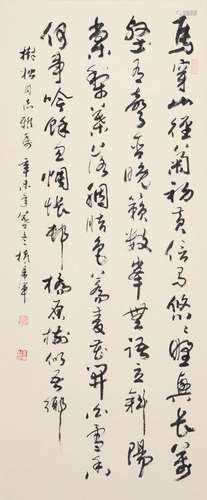 馬穿山徑菊初黃信馬悠悠野興長萬
壑有聲含晚籟數峰無語立斜陽
棠梨葉落胭脂色蕎麥花開白雪香
何事吟餘忽惆悵邨橋原樹似吾鄉
樹松同志雅屬 辛未年